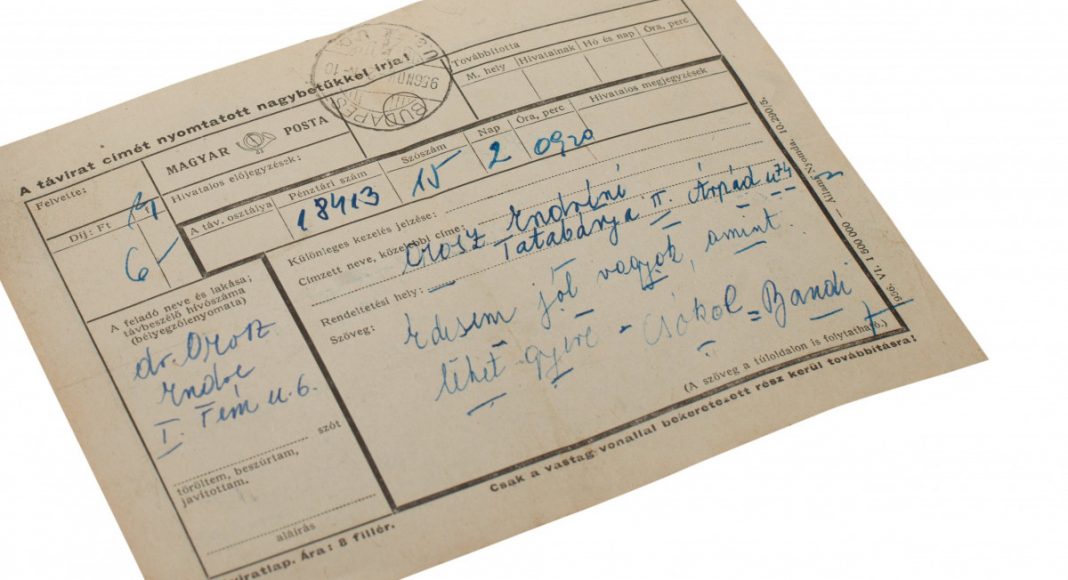 A távirat címét nyomtatott nagybetűkkel írja!
Felvette:
MAGYAR POSTA
Hivatalos előjegyzések:
Továbbította
M. hely Hivatalnak Hó és nap Óra, perc
Díj: Ft
6
A táv. osztálya
Pénztári szám
18413
Szószám
15
Nap
2
Óra, perc
0920
Hivatalos megjegyzések
Különleges kezelés jelzése:
Címzett neve, közelebbi címe:
Orosz Endréné
Tatabánya II. Árpád u 74
Rendeltetési hely:
Szöveg:
Édesem jól vagyok, amint
lehet gyere - csókol = Bandi
(A szöveg a túloldalon is folytatható.)
Csak a vastag vonallal bekeretezett rész kerül továbbításra!
A feladó neve és lakása;
távbeszélő hívószáma
(bélyegzőlenyomata)
dr. Orosz
Endre
I. Fém u. 6.
szót
töröltem, beszúrtam,
javítottam.
aláírás
viratlap. Ára: 8 fillér.
956. VI. 1 500 000 — Állami Nyomda. 10.200/5.
BUDAPES